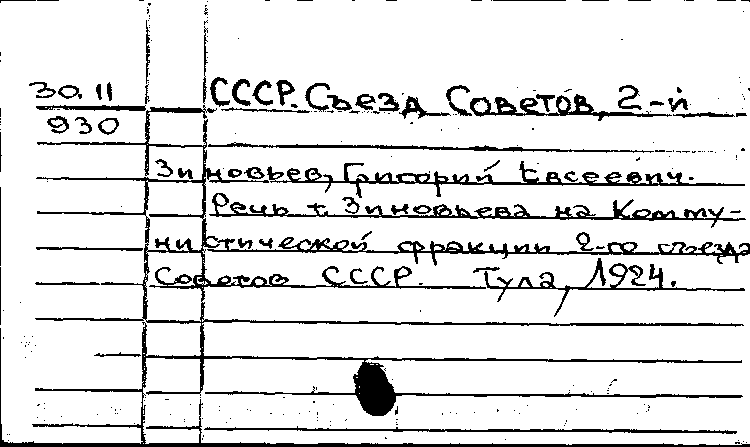 30.11
930
СССР. Съезд Советов, 2-й
Зиновьев, Григорий Евсеевич.
Речь т. Зиновьева на Комму-
нистической фракции 2-го съезда
Советов СССР. Тула, 1924.